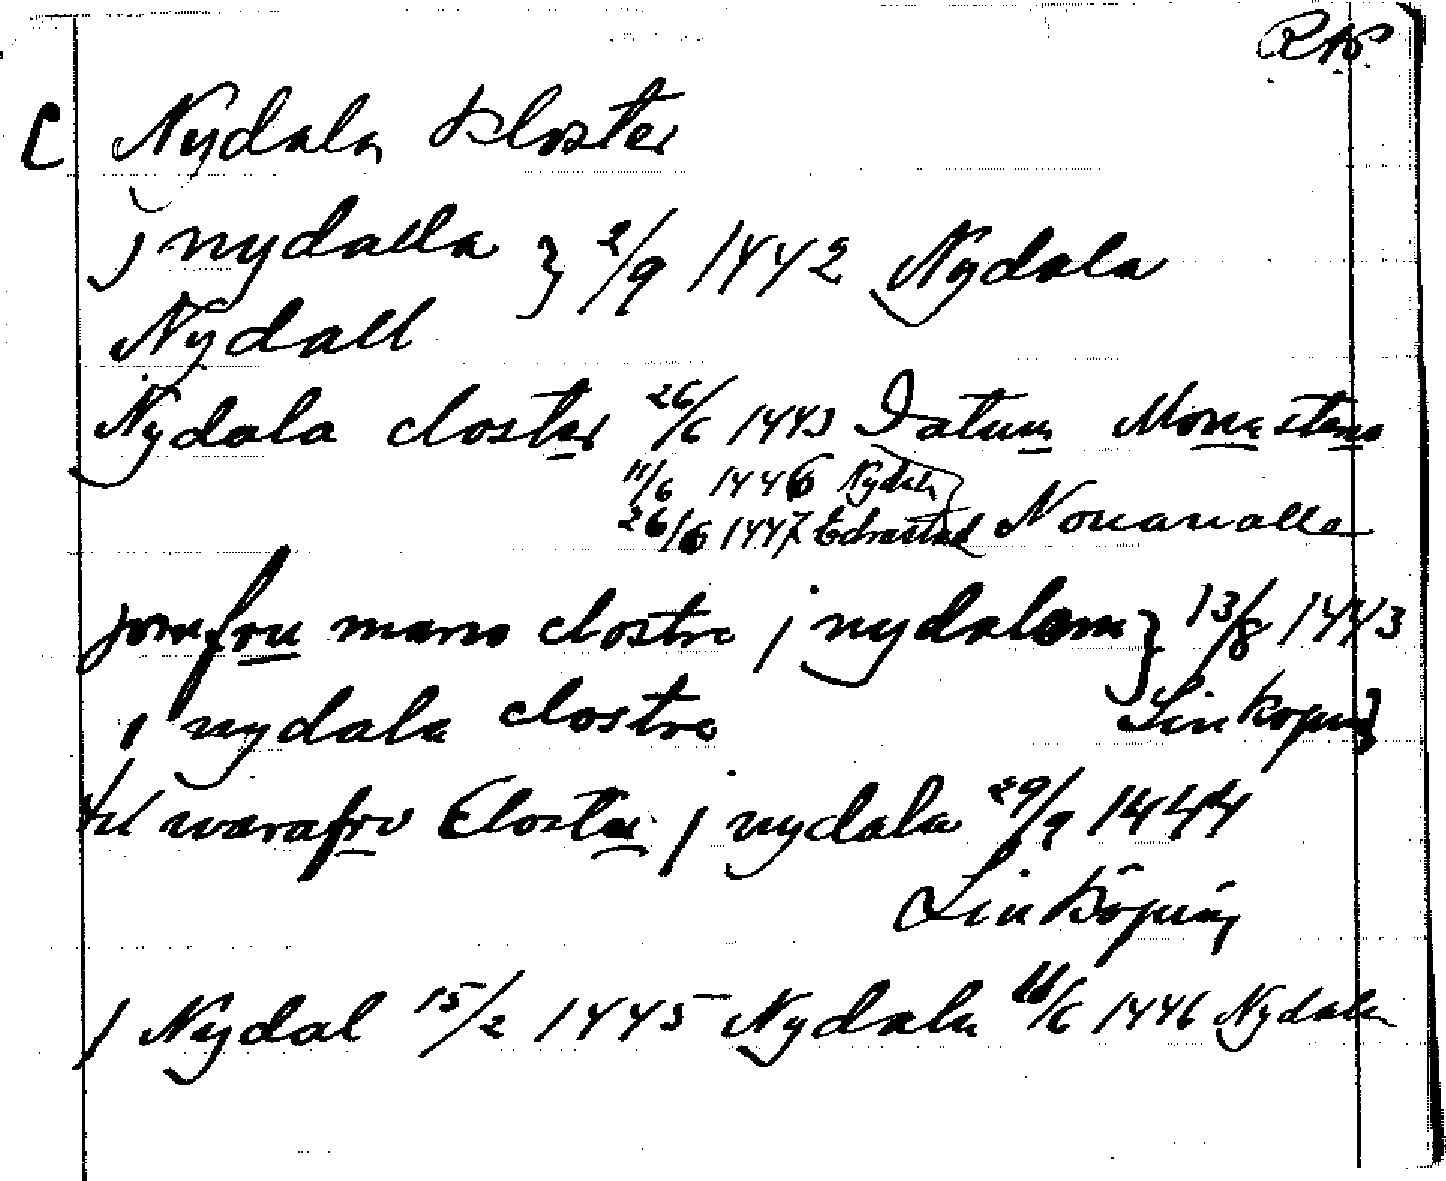 RAp
[ Nydala kloster
j nydalla } 2/9 1442 Nydala
Nydall
Nydala closter 26/6 1443 Datum Monasterio
11/6 1446 Nydala
26/6 1447 Nouaualle
jomfru marie clostre j nydalom } 13/8 1443
j nydala clostre Linköping }
til warafru Closter j nydala 29/9 1444
Linköping
j Nydal 15/2 1445 Nydala 11/6 1446 Nydala